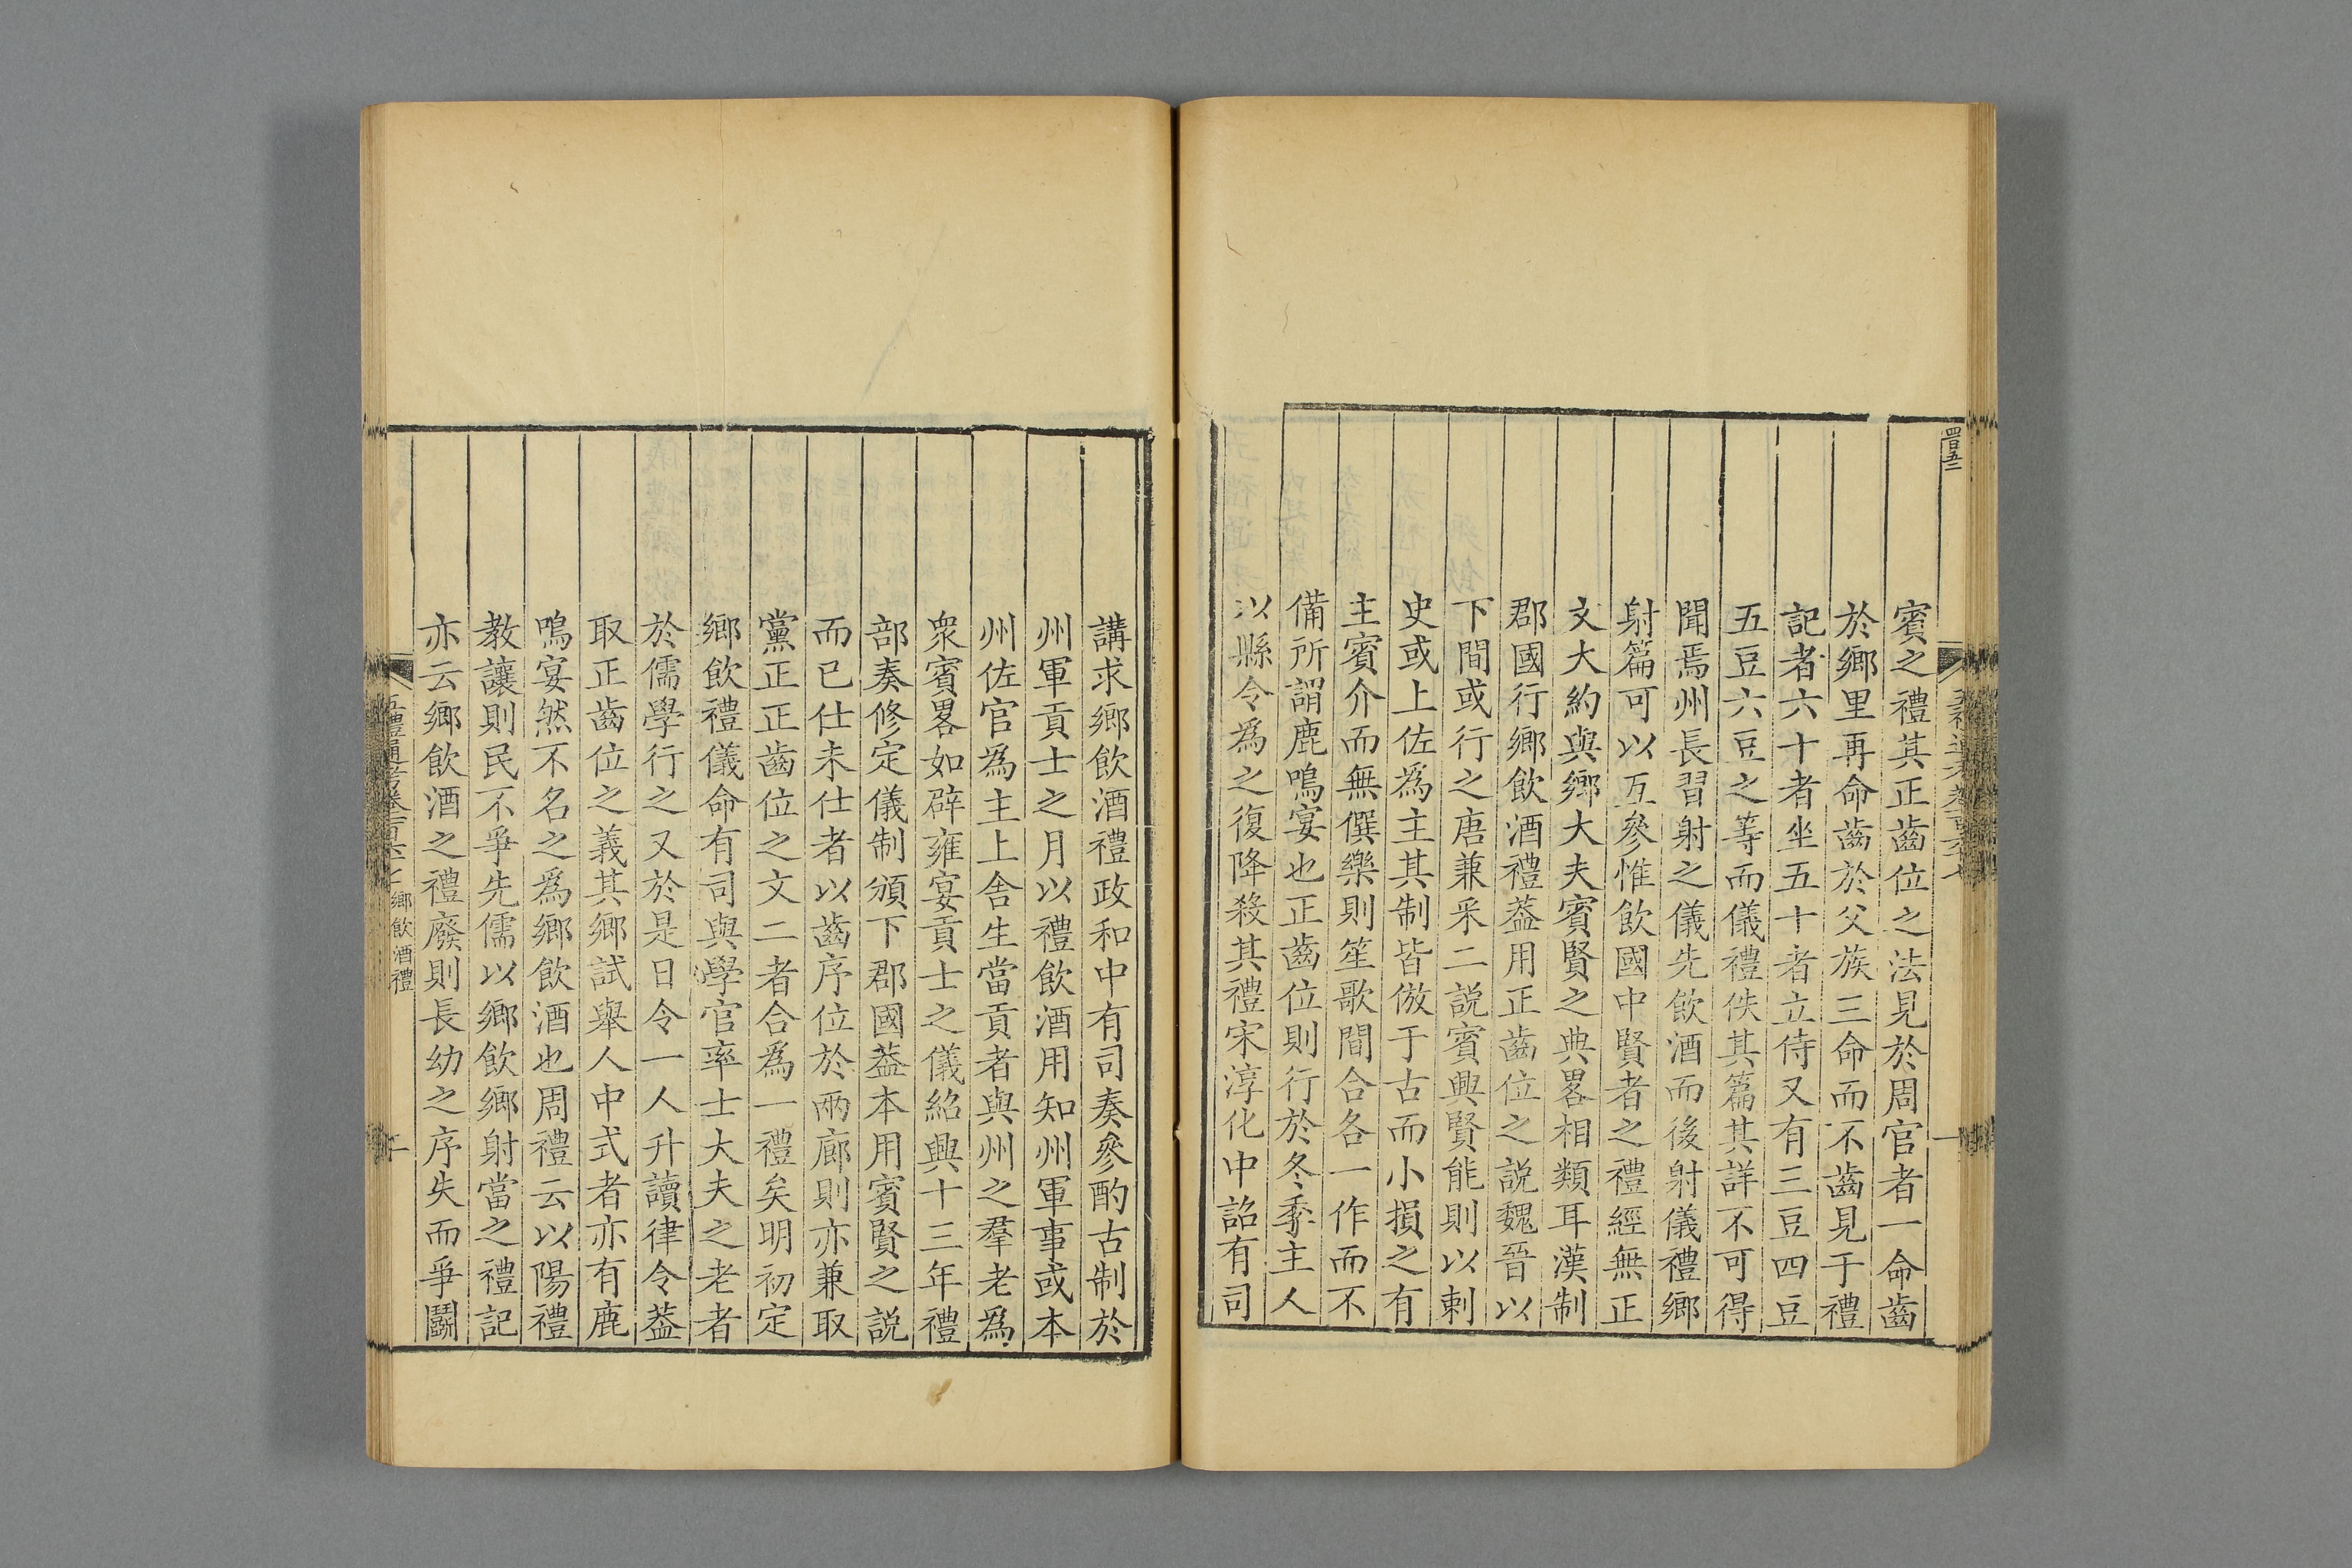 四百五二
賓之禮其正齒位之法見於周官者一命齒
於鄉里再命齒於父族三命而不齒見于禮
記者六十者坐五十者立侍又有三豆四豆
五豆六豆之等而儀禮佚其篇其詳不可得
聞焉州長習射之儀先飲酒而後射儀禮鄉
射篇可以互參惟飲國中賢者之禮經無正
文大約與鄉大夫賓賢之典畧相類耳漢制
郡國行鄉飲酒禮葢用正齒位之説魏晉以
下間或行之唐兼采二説賓興賢能則以刺
史或上佐爲主其制皆倣于古而小損之有
主賓介而無僎樂則笙歌間合各一作而不
備所謂鹿鳴宴也正齒位則行於冬季主人
以縣令爲之復降殺其禮宋淳化中詔有司
講求鄉飲酒禮政和中有司奏參酌古制於
州軍貢士之月以禮飲酒用知州軍事或本
州佐官爲主上舍生當貢者與州之羣老爲
衆賓畧如辟雍宴貢士之儀紹興十三年禮
部奏修定儀制頒下郡國葢本用賓賢之説
而已仕未仕者以齒序位於兩廊則亦兼取
黨正正齒位之文二者合爲一禮矣明初定
鄉飲禮儀命有司與學官率士大夫之老者
於儒學行之又於是日令一人升讀律令葢
取正齒位之義其鄉試舉人中式者亦有鹿
鳴宴然不名之爲鄉飲酒也周禮云以陽禮
教讓則民不爭先儒以鄉飲鄉射當之禮記
亦云鄉飲酒之禮廢則長幼之序失而爭鬭
五禮通考卷一百六十七 鄉飲酒禮